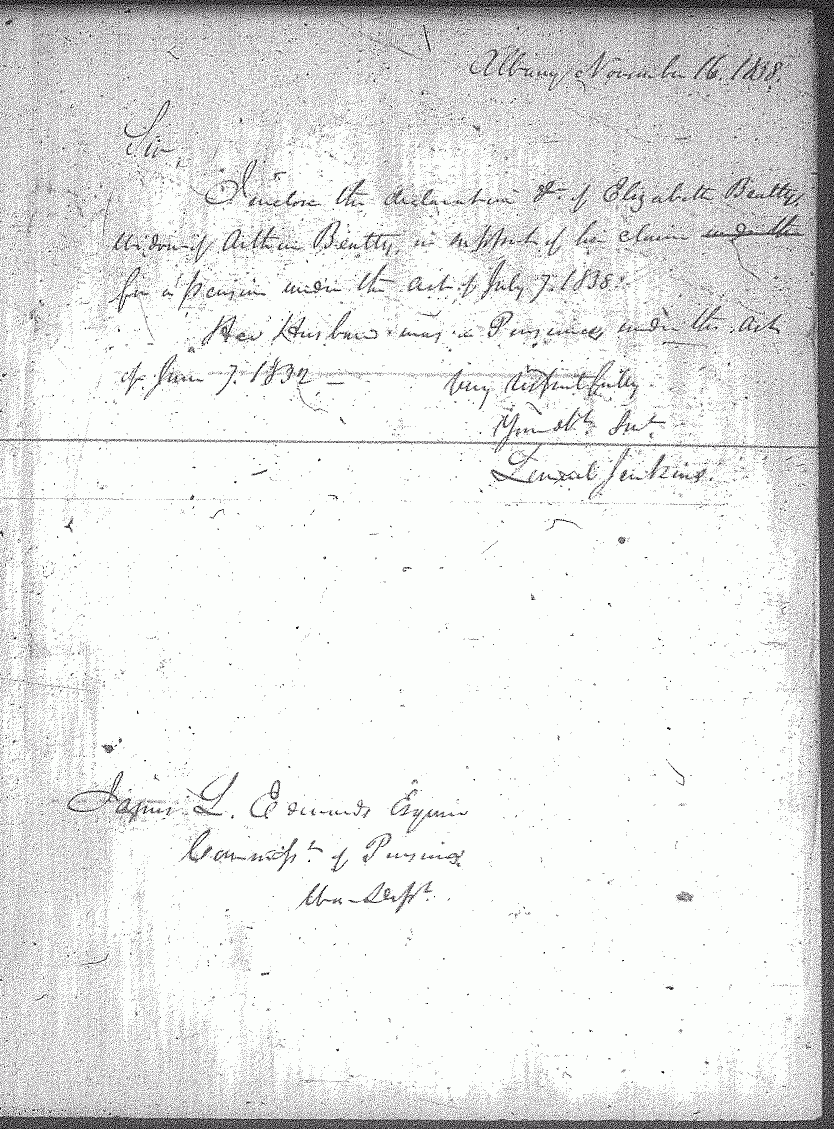 Albany November 16. 1838.
Sir,
I enclose the declaration &c. of Elizabeth Beatty,
Widow of Arthur Beatty, in support of her claim under the
for a pension under the act of July 7. 1838.
Her Husband was a Pensioner under the act
of June 7. 1832 –
Very respectfully
Your obt. Svt.
Lemuel Jenkins.
James L. Edwards Esquire
Commissr. of Pensions
War Dept.